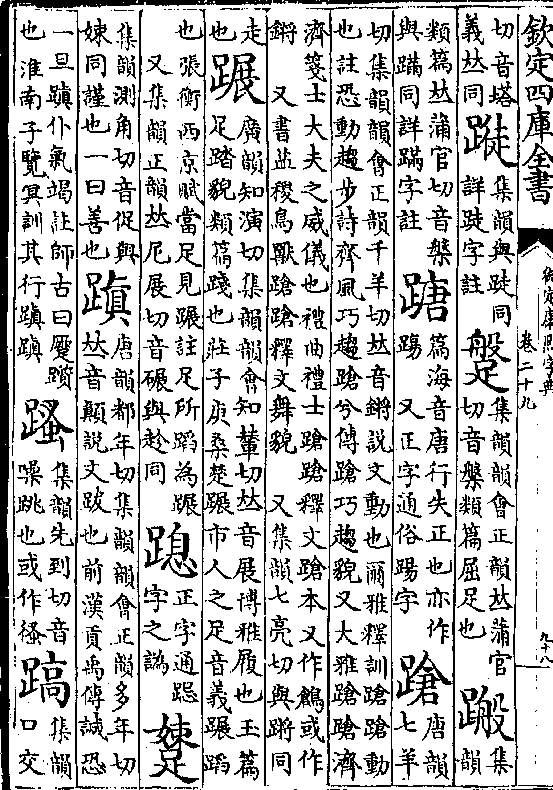 欽定四庫全書
御定康熙字典
卷二十九
九十八
切音塔義𠀤同 蹝 集韻與同詳字註 集韻韻會正韻𠀤蒲官切音槃類篇屈足也 集韻
類篇𠀤蒲官切音槃與蹣同詳蹣字註 篇海音唐行失正也亦作踼 又正字通俗踼字 蹌 唐韻七羊
切集韻韻會正韻千羊切𠀤音鏘說文動也爾雅釋訓蹌蹌動也註恐動趨步詩齊風巧趨蹌兮傳蹌巧趨貌又大雅蹌蹌濟
濟箋士大夫之威儀也禮曲禮士蹌蹌釋文蹌本又作鶬或作鏘 又書益稷鳥獸蹌蹌釋文舞貌 又集韻七亮切與蹡同
走也 蹍 廣韻知演切集韻韻會知輦切𠀤音展博雅履也玉篇足踏貌類篇踐也莊子庚桑楚蹍市人之足音義蹍蹈
也張衡西京賦當足見蹍註足所蹈為蹍 又集韻正韻𠀤尼展切音碾與趁同 正字通跽字之譌
集韻測角切音促與娕同謹也一曰善也 蹎 唐韻都年切集韻韻會正韻多年切𠀤音顛說文跋也前漢貢禹傳誠恐
一旦蹎仆氣竭註師古曰蹷躓也淮南子覽冥訓其行蹎蹎 集韻先到切音噪跳也或作 蹻 集韻口交